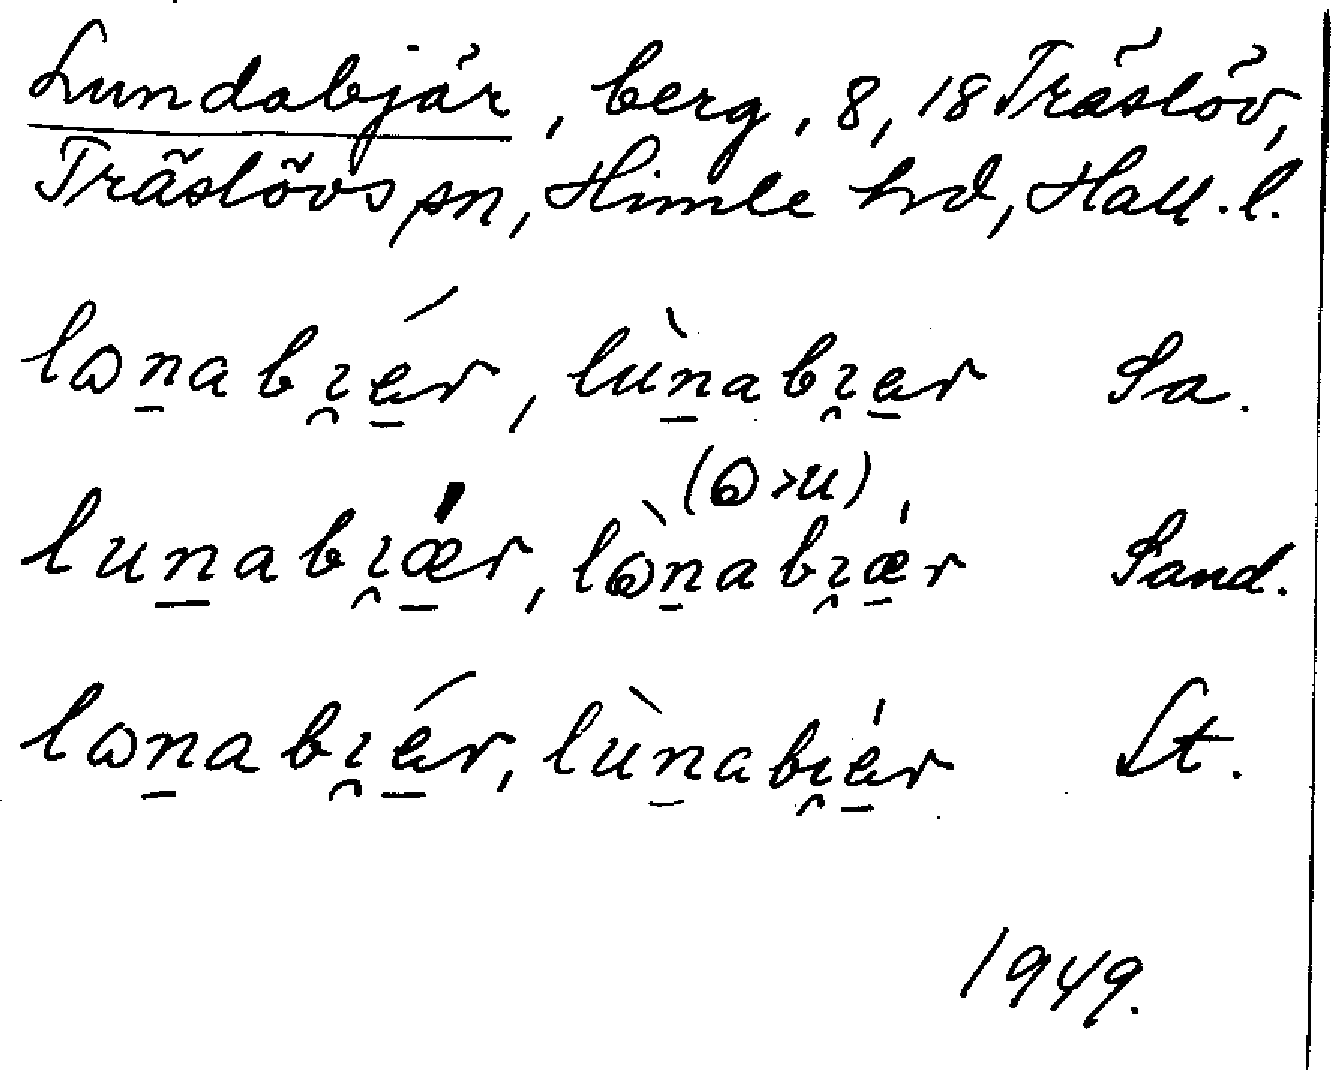 Lundabjär, berg, 8, 18 Träslöv,
Träslövs sn, Himle hd, Hall. l.
lɷn̠abı̯é̠r, lùn̠abı̯e̠r Sa.
(ɷ>u)
lun̠abı̯ǽ̠r, lɷ̀n̠abı̯ǽ̠r Sand.
lɷn̠abı̯é̠r, lùn̠abı̯é̠r St.
1949.